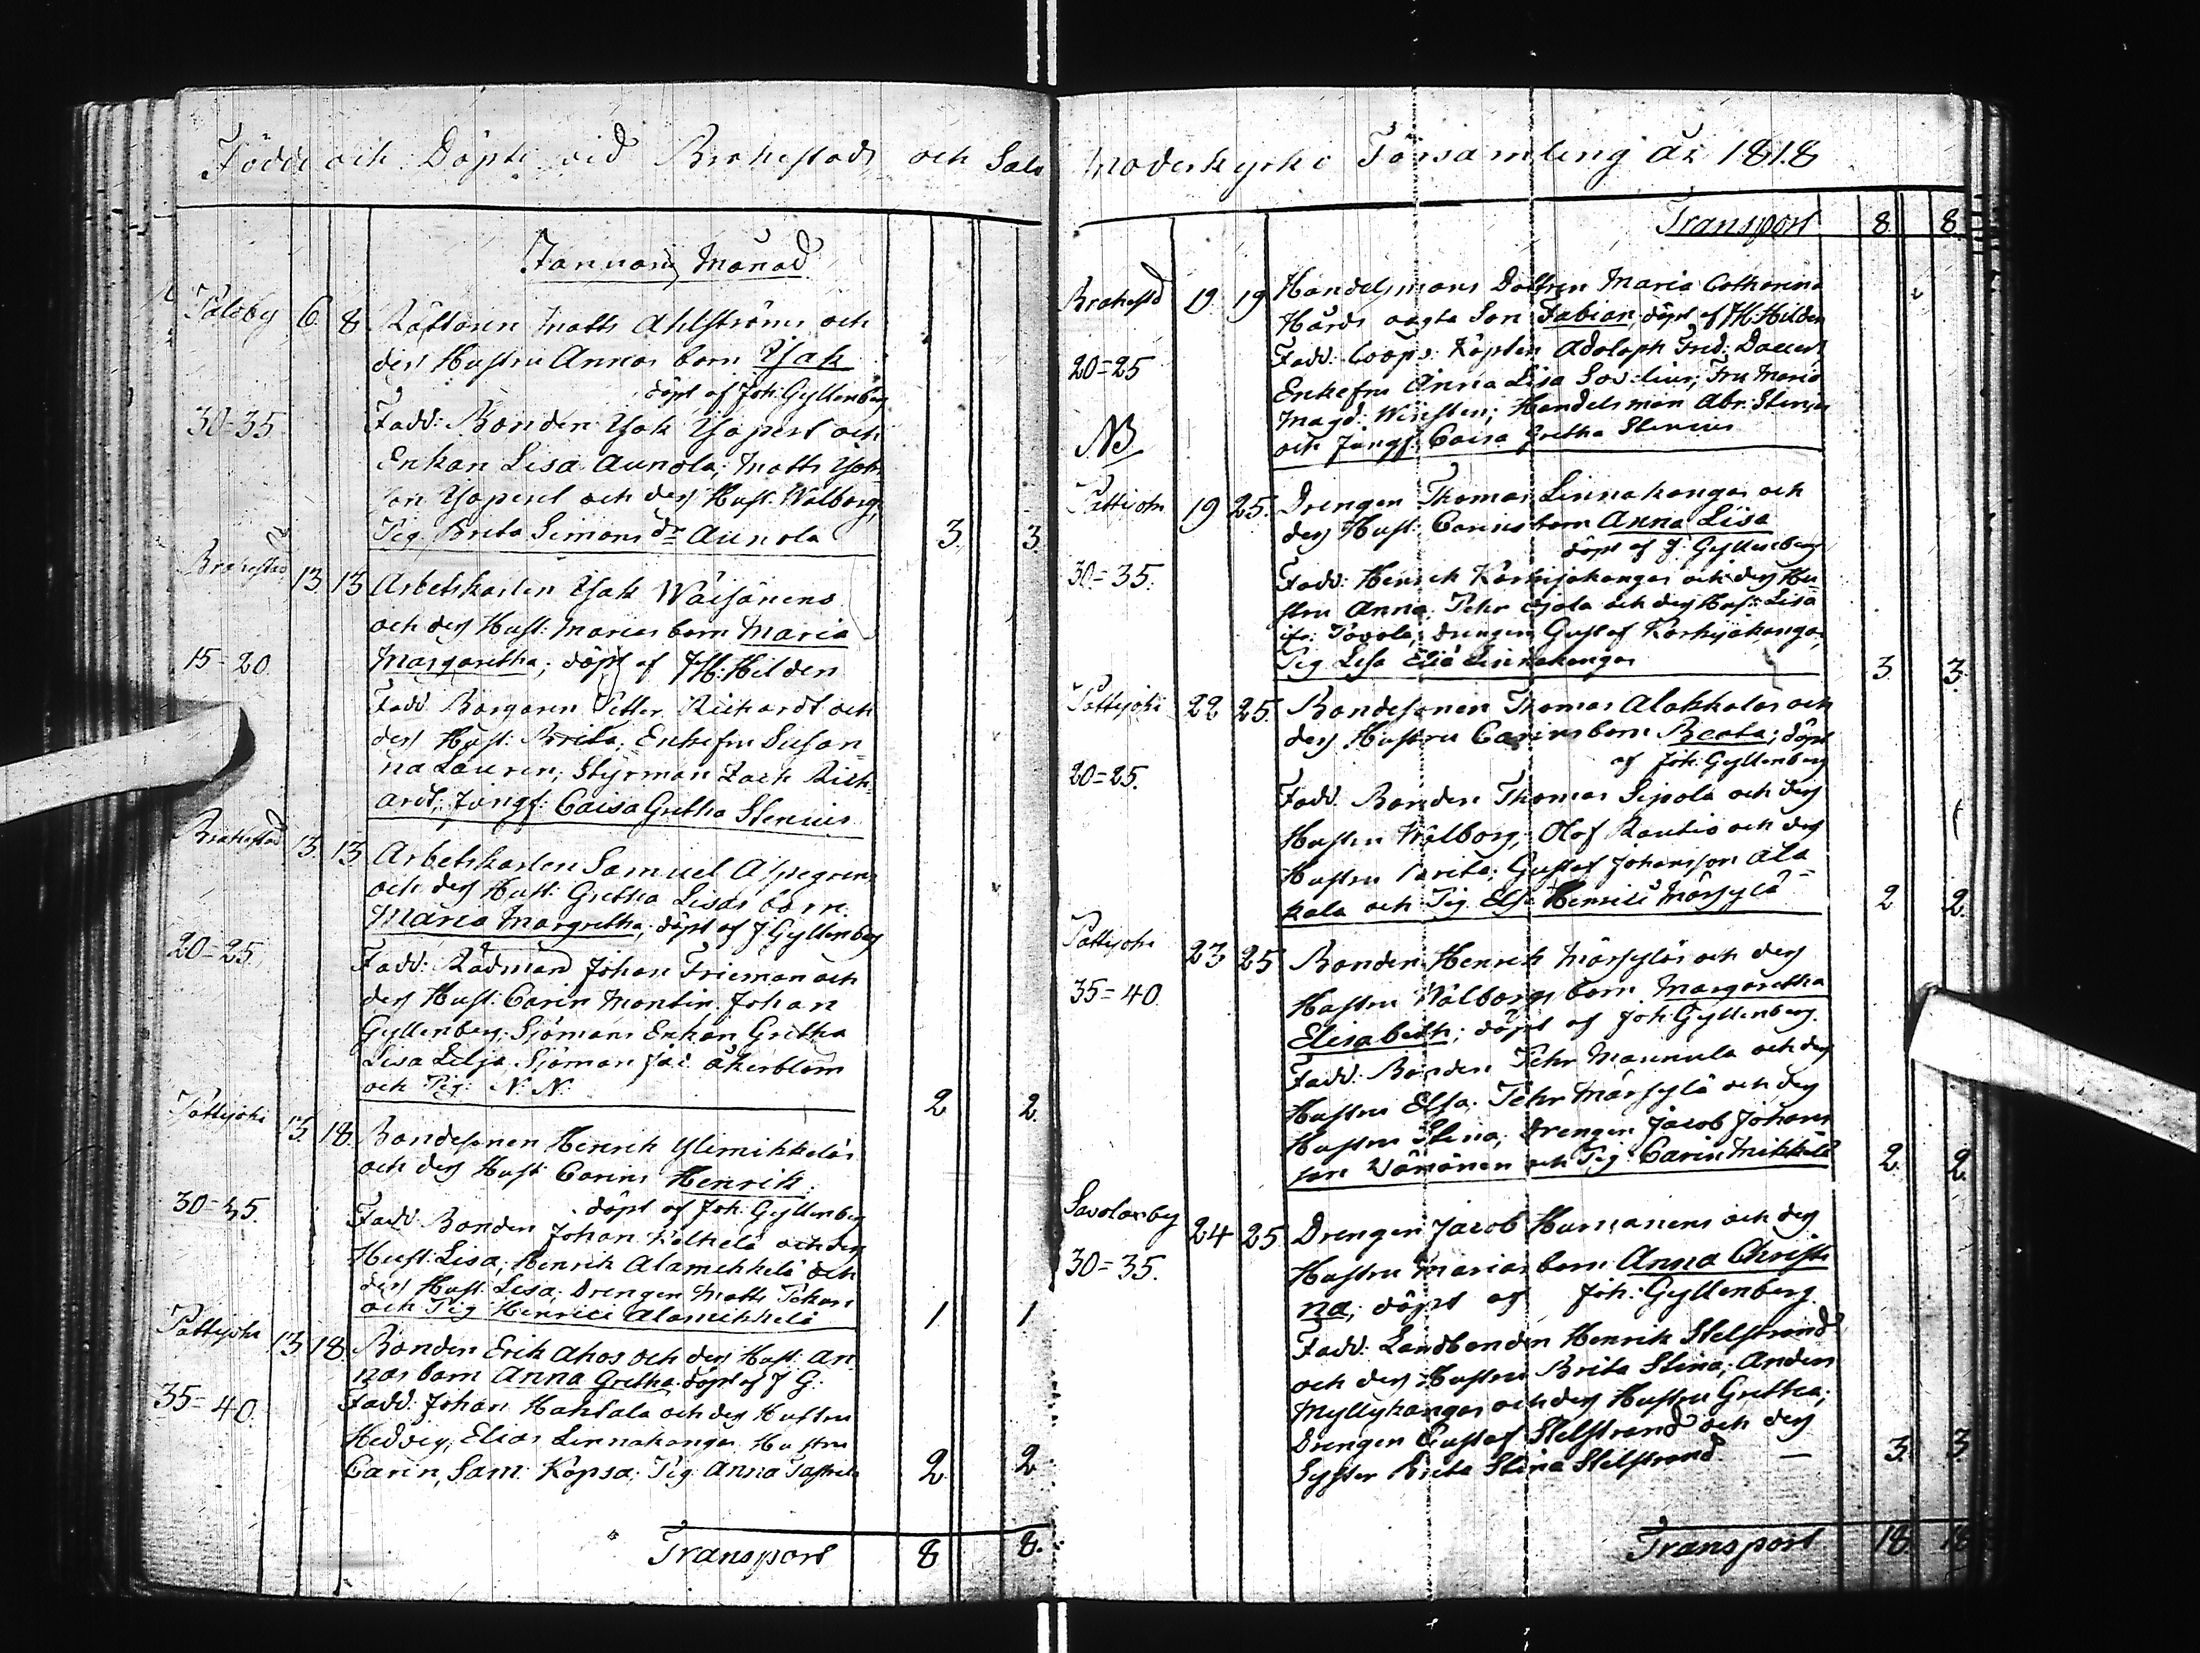 Födde och Döpte vid Brahestads och Salo
January Månad
Paloby 6 8 Rättaren Matts Ahlströms och
des Hustru Annas barn Isak
döpt af Joh: Gyllenberg
30-35 Fadd: Bonden Isak Yopert och
Enkan Lisa Aunola; Matts
Yopert och des Hust. Walborg,
Pig. Brita Simons dr Aunola 3. 3.
Brahestad 13 13 Arbetskarlen Isak Wäisänens
och des Hust: Marias barn Maria
15-20. Margaretha; döpt af J H: Hilden
Fadd. Borgaren Petter Richardt och
des Hust: Brita; Enkefru Susan
na Lauren; Styrman Zach Rich
ardt; Jungf: Caisa Gretha Stenius
Brahestad 13. 13 Arbetskarlen Samuel Aspegrens
och des Hust: Gretha Lisas barn.
Maria Margretha; döpt af J Gyllenberg
20-25. Fadd: Rådman Johan Frieman och
des Hust: Carin Montin Johan
Gyllenberg; Sjömans Enkan Gretha
Lisa Lilja, Sjöman Jac Åkerblom
och Pig: N: N: 2 2.
Pattijoki 13. 18. Bondesonen Henrik Ylimikkeläs
och des Hust Carins Henrik.
döpt af Joh: Gyllenberg
30-35. Fadd. Bonden Johan och des
Hust: Lisa; Henrik Alamikkelä och
des Hust: Lisa; Drengen Matts
och Pig Henrici Alamikkelä 1 1
Pattijoki 13 18. Bonden Erik Ahos och des Hust. An
nas barn Anna Gretha. döpt af J G:
35-40. Fadd: Johan Hahtala och des Hustru
Hedvig; Elias Linnakangas Hustru
Carin, Sam: Kopsa; Pig Anna 2 2
Transport 8 8.
Moderkyrko Församling år 1818
Transport 8 8.
Brahestd 19 19 Handelsmans Dottren Maria Catharina
Hårds oägta Son Fabian; döpt af J H: Hilden
20=25 Fadd. Coop: Kapten Adolph Fred:
Enkefru Anna Lisa Fru Maria
Magd: Handelsman Abr: Stenius
NB och Jungf: Caisa Gretha Stenius
Pattijoki 19 25. Drengen Thomas Linnakangas och
des Hust: Carins barn Anna Lisa
döpt af J. Gyllenberg
30=35. Fadd: Henrik Karhjokangas och des Hu
stru Anna; Pehr och des Hust: Lisa
Tovola; drengen Gustaf Karhjokangas,
Pig Lisa Linnakangas 3. 3.
Pattijoki 22 25. Bondesonen Thomas Alakkalas och
des Hustru Carins barn Beata; döpt
af Joh: Gyllenberg
20=25. Fadd. Bonden Thomas Sipola och des
Hustru Walborg; Olof Rautio och des
Hustru Brita; Gustaf Johansson Ala-
kala och Pig. Elsa Henrici Märsylä 2 2.
Pattijoki 23 25 Bonden Henrik Märsyläs och des
35=40. Hustru Walborgs barn Margaretha
Elisabeth; döpt af Joh: Gyllenberg.
Fadd: Bonden Pehr Mannula och des
Hustru Elsa; Pehr Märsylä och des
Hustru Stina; Drengen Jacob Johans
son Wänänen och Pig. Carin Mikkelä 2. 2
Savolaxby 24 25. Drengen Jacob och des
30=35. Hustru Marias barn Anna Christi
na; döpt af Joh: Gyllenberg.
Fadd: Landbonden Henrik Stelstrand
och des Hustru Brita Stina; Anders
Myllykangas och des Hustru Gretha;
Drengen Gustaf Stelstrand och des
Syster Brita Stina Stelstrand — 3. 3.
Transport 18. 18